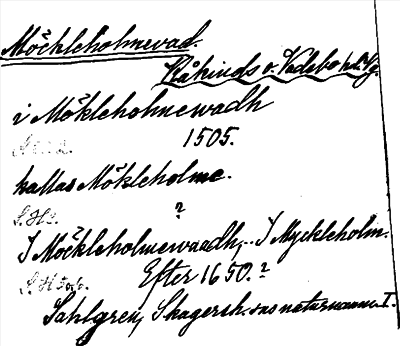 Möckleholmevad.
Kåkinds o. Vadsbo hd. Vg.
i Möklehohnewadh
1505.
kallas Mökleholme.
S.H.S. ?
I Möckleholmewaadh,.. I Myckleholm.
Efter 1650.?
Sahlgren, Skagersh. sas naturnamn I.